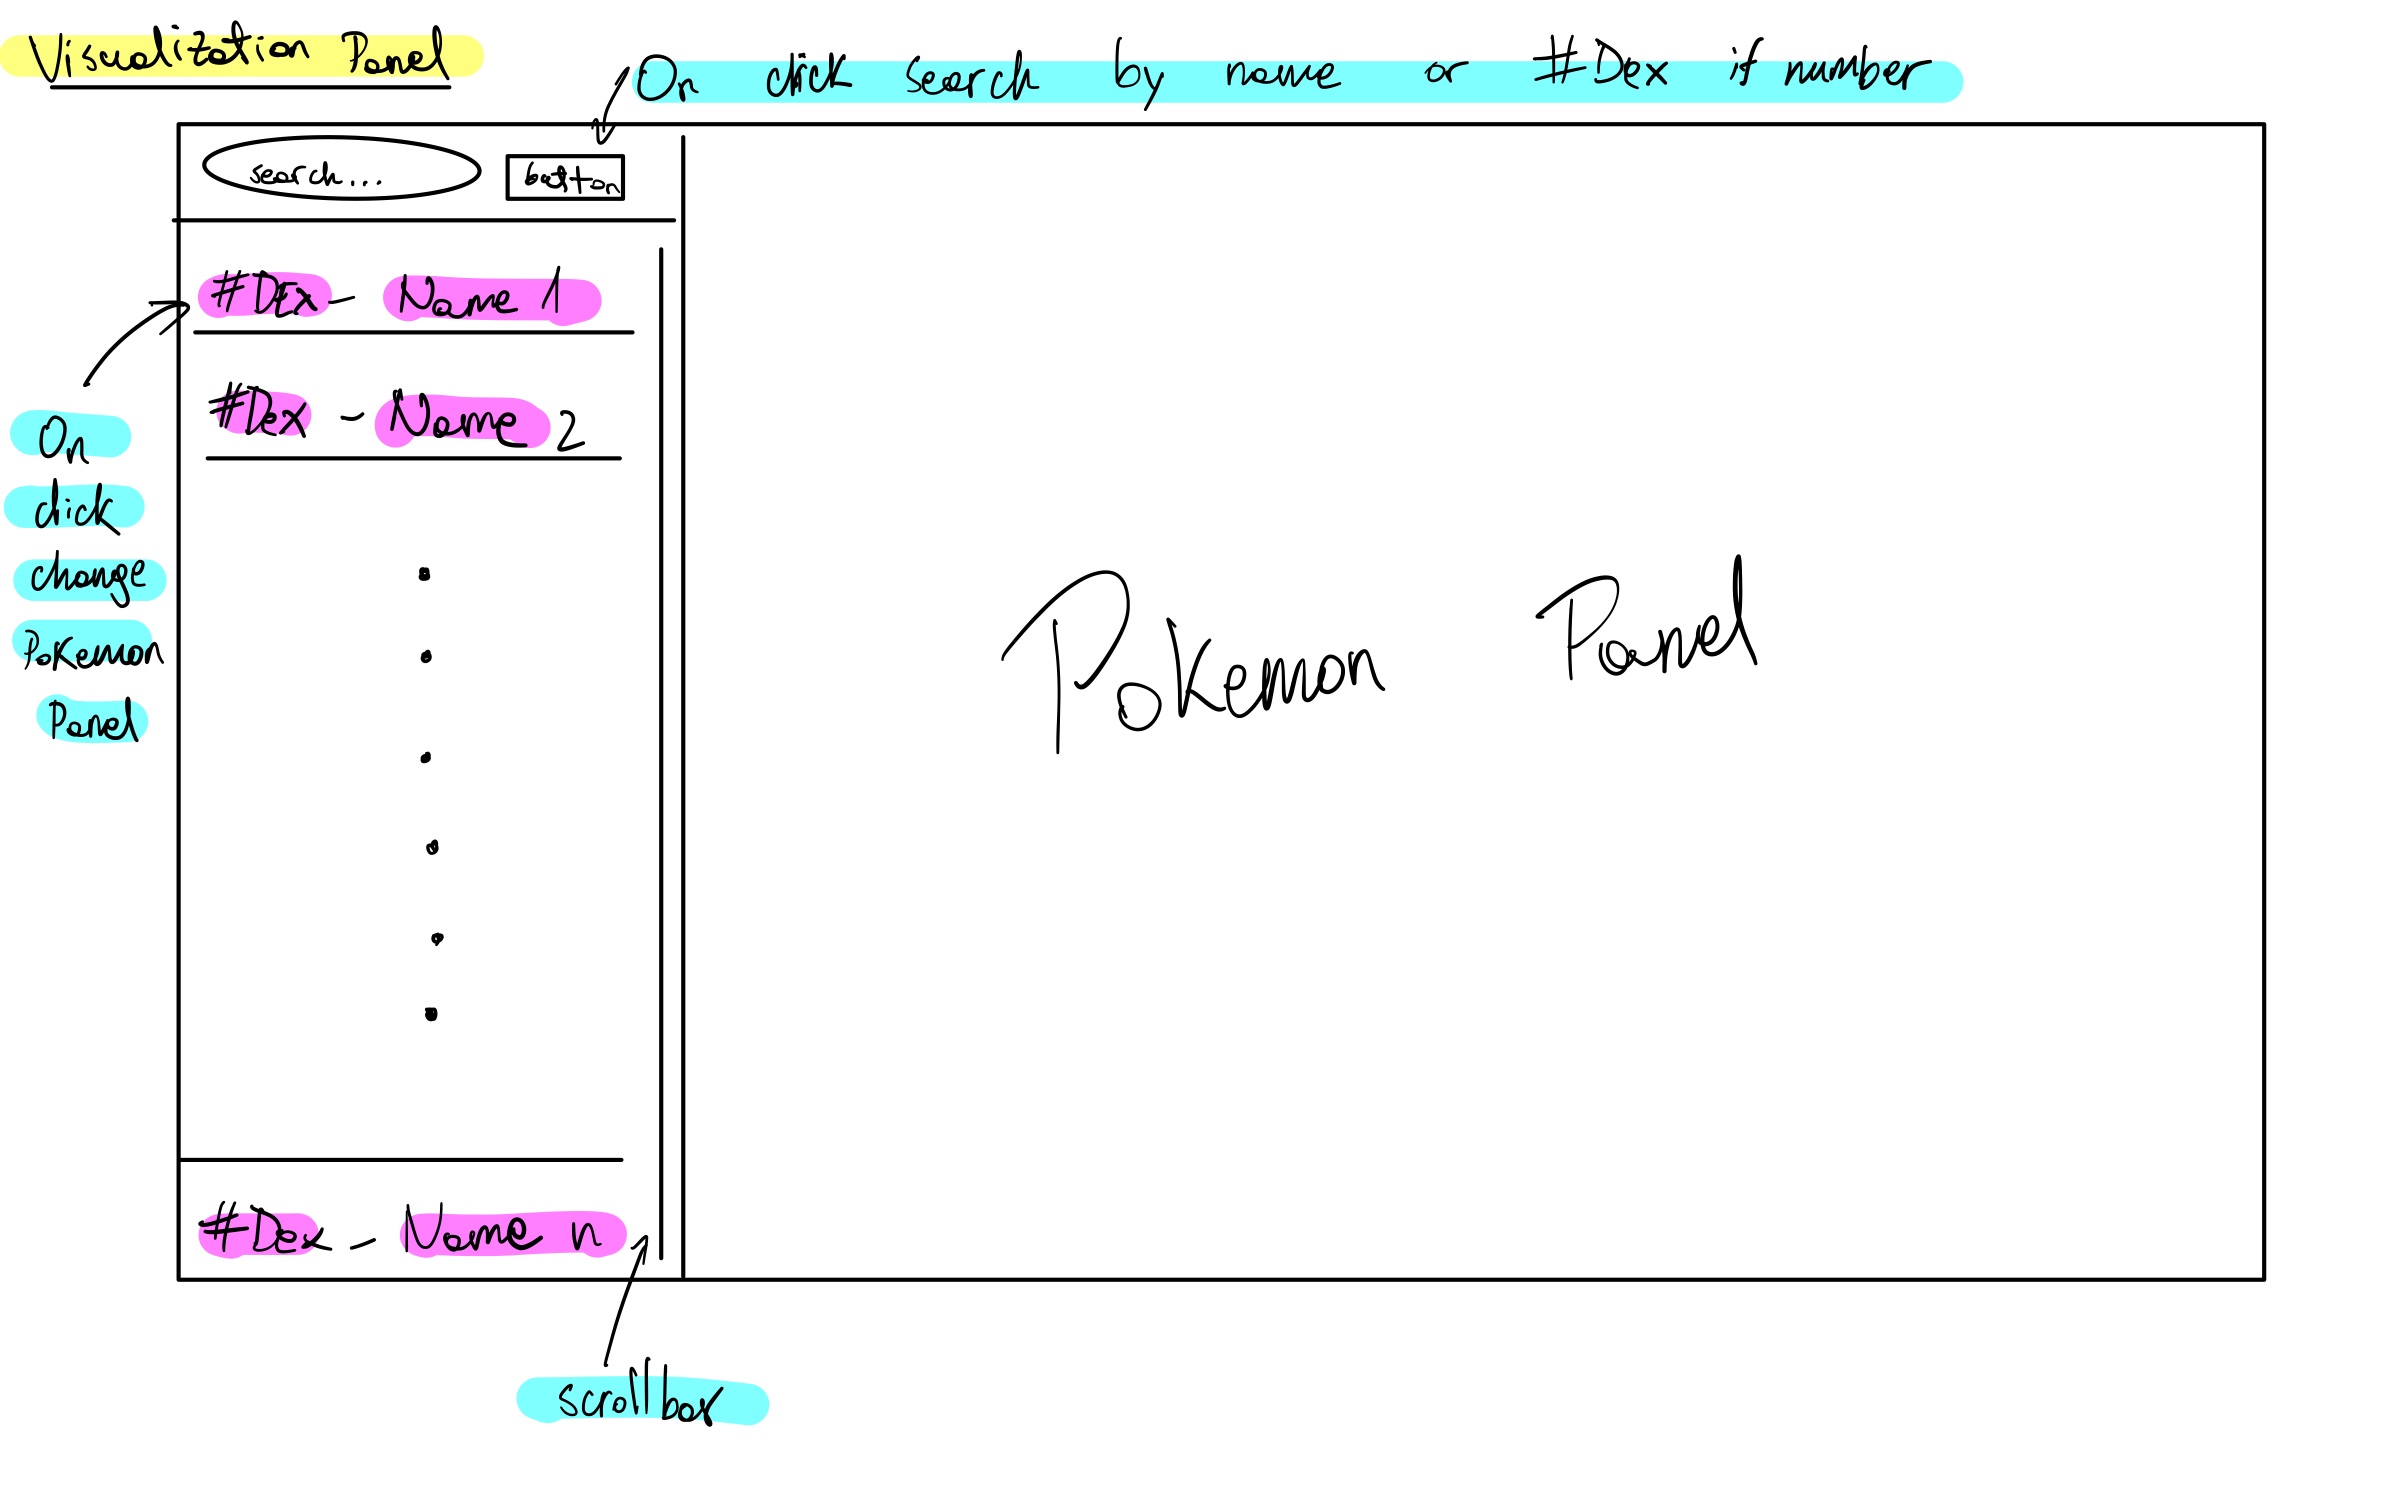 Visualization Panel
On click search by name or #Dex if number
search...
button
#Dex - Name 1
#Dex - Name 2
On
click
change
Pokemon
Panel
Pokemon Panel
#Dex - Name n
scrollbar